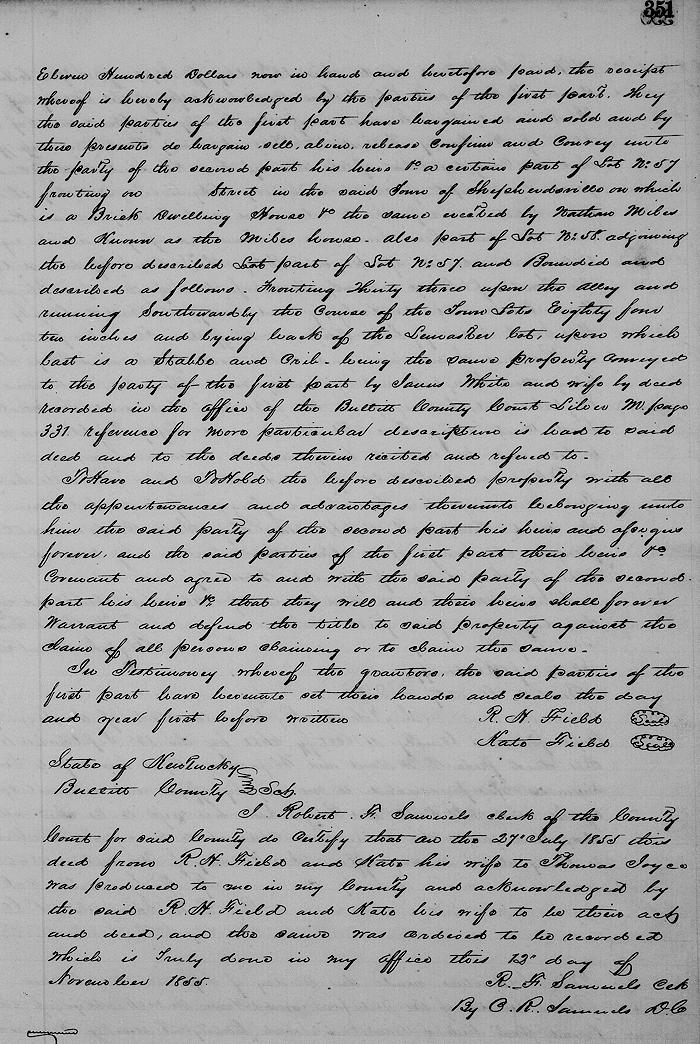 351
Eleven Hundred Dollars now in hand and heretofore paid, the receipt
whereof is hereby acknowledged by the parties of the first part. They
the said parties of the first part have bargained and sold and by
these presents do bargain sell, alien, release confirm and Convey unto
the party of the second part his heirs &c a certain part of Lot No. 57
fronting on Street in the said Town of Shepherdsville on which
is a Brick Dwelling House &c the same erected by Nathan Miles
and Known as the Miles house. also part of Lot No. 58. adjoining
the before described Lot part of Lot No. 57. and Bounded and
described as follows. Fronting Thirty three upon the Alley and
running Southwardly the Course of the Town Lots Eighty four
ten inches and lying back of the Lemaster Lot, upon which
last is a Stable and Crib - being the same property Conveyed
to the party of the first part by James White and wife by deed
recorded in the office of the Bullitt County Court Liber M. page
331 reference for more particular description is had to said
deed and to the deeds therein recited and refered to.
To Have and To Hold the before described property with all
the appurtenances and advantages thereunto belonging unto
him the said party of the second part his heirs and assigns
forever, and the said parties of the first part their heirs &c
Covenant and agree to and with the said party of the second
part his heirs &c. that they will and their heirs shall forever
Warrant and defend the title to said property against the
claim of all persons claiming or to claim the same.
In Testimony whereof the grantors, the said parties of the
first part have hereunto set their hands and seals the day
and year first before written R. H. Field Seal
Kate Field Seal
State of Kentucky
Bullitt County Sct
I Robert. F. Samuels clerk of the County
Court for said County do Certify that on the 27" July 1855 this
deed from R. H. Field and Kate his wife to Thomas Joyce
was produced to me in my County and acknowledged by
the said R. H. Field and Kate his wife to be their act
and deed, and the same was ordered to be recorded
which is Truly done in my office this 12" day of
November 1855. R. F. Samuels Clk
By C. R. Samuels D. C